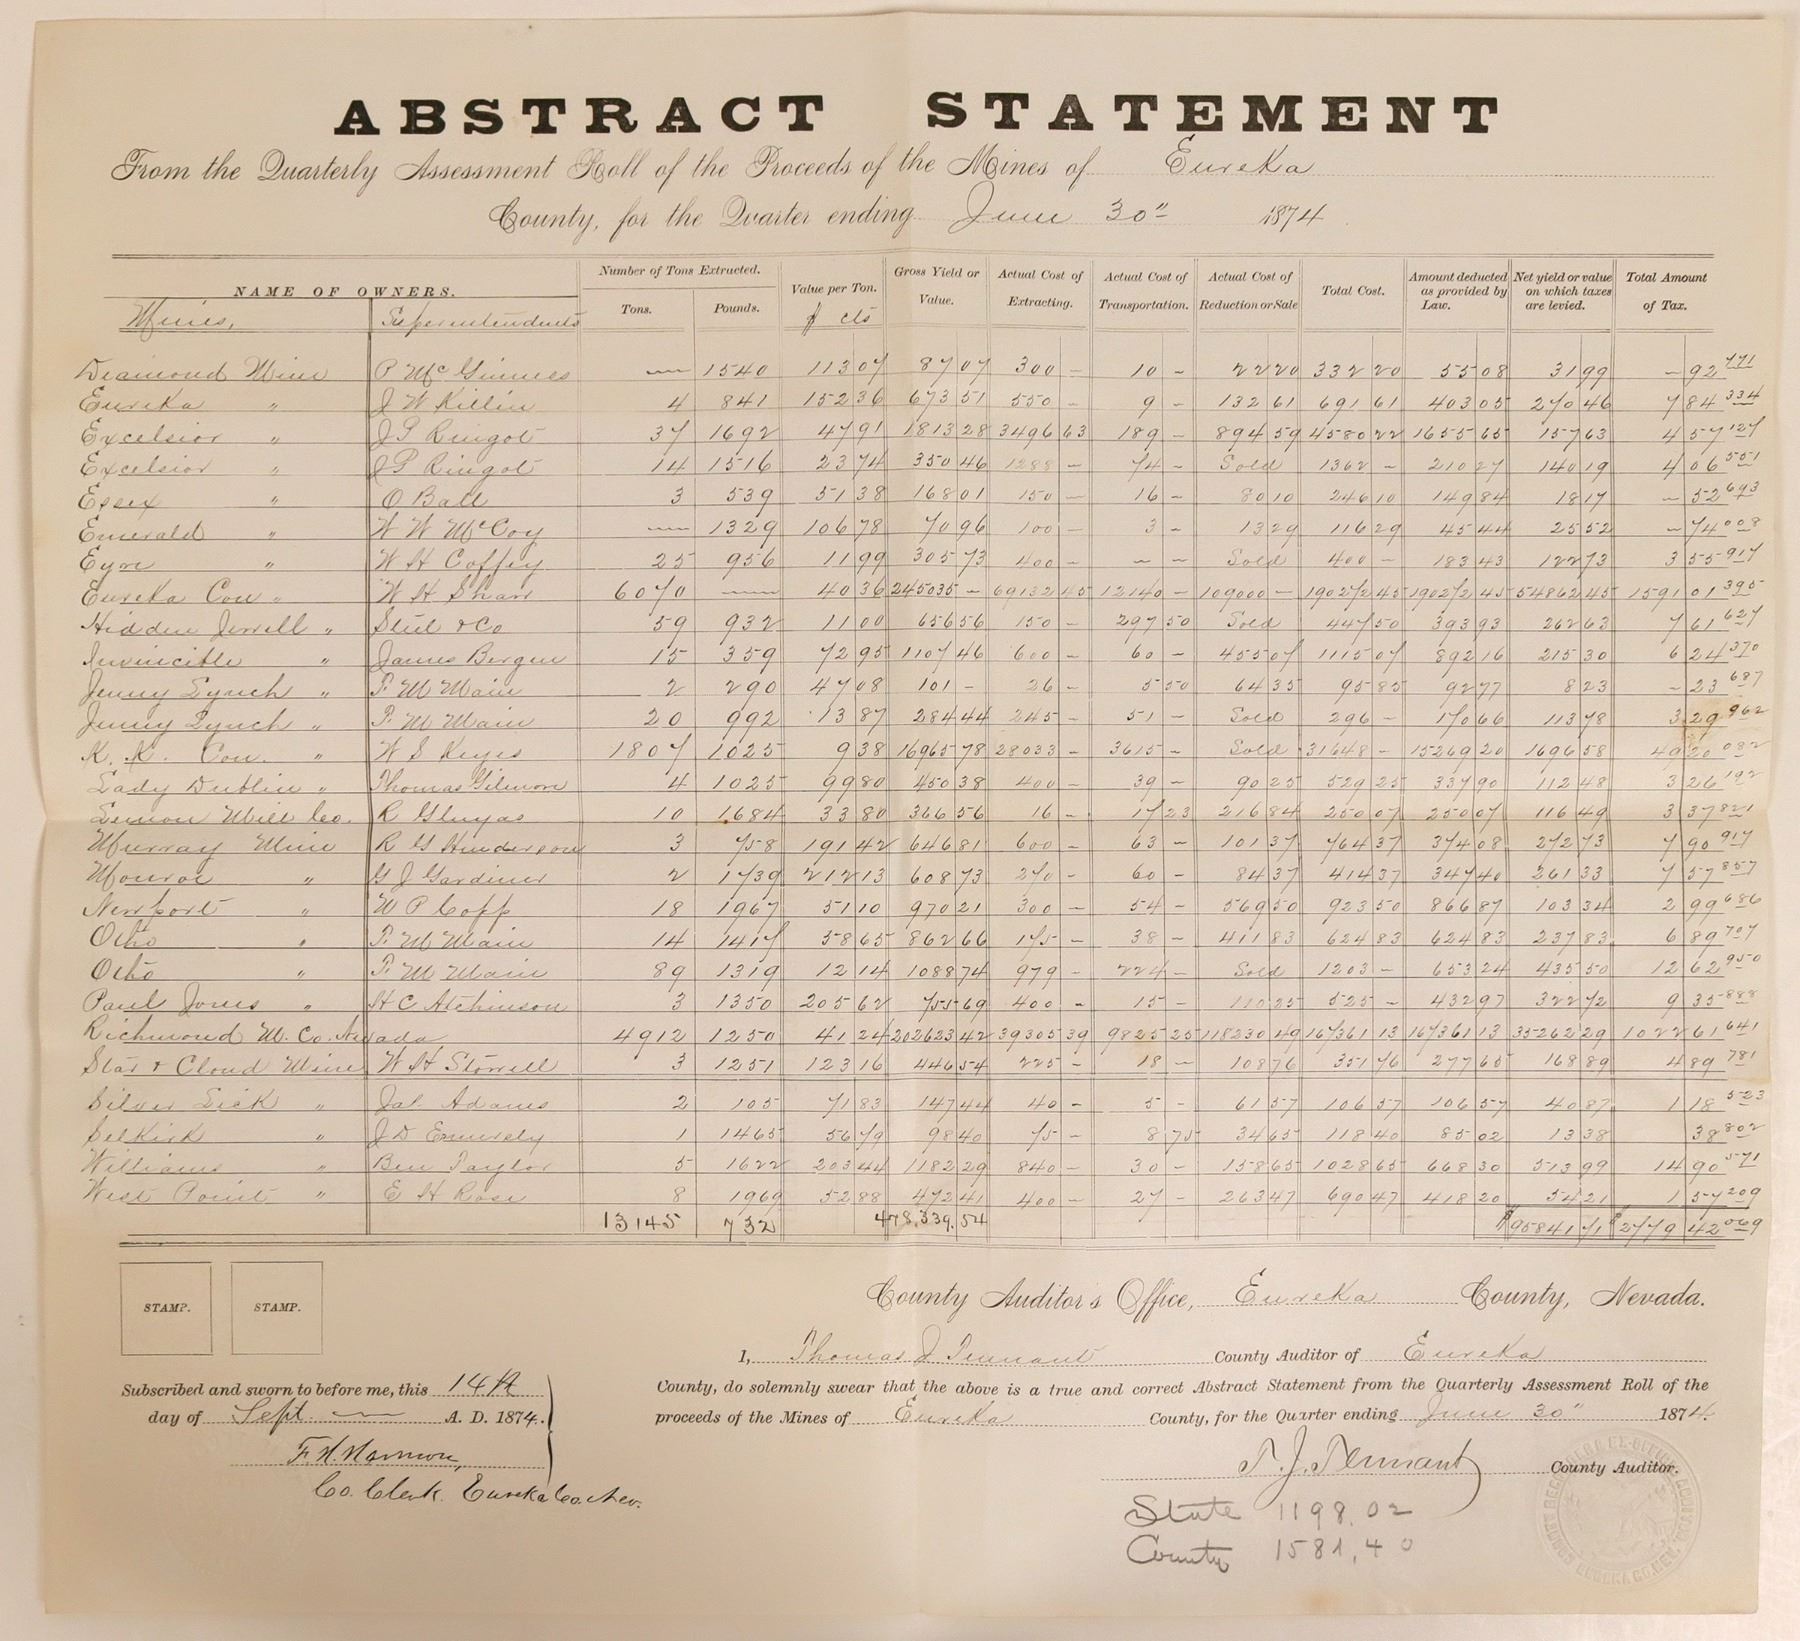 ABSTRACT STATEMENT
From the Quarterly Assessment Roll of the Proceeds of the Mines of Eureka
County, for the Quarter ending June 30" 1874
NAME OF OWNERS. Number of Tons Extracted. Value per Ton. Gross Yield or Value. Actual Cost of Extracting. Actual Cost of Transportation. Actual Cost of Reduction or Sale Total Cost. Amount deducted as provided by Law. Net yield or value on which taxes are levied. Total Amount of Tax.
Mines, Superintendents Tons. Pounds. $ cts
Diamond Mine P McGinnes — 1540 113 07 87 07 300 – 10 – 22 20 332 20 55 08 31 99 – 92 771
Eureka " J W Killin 4 841 152 36 673 51 550 – 9 – 132 61 691 61 403 05 270 46 7 84 334
Excelsior " J P Ringot 37 1692 47 91 1813 28 3496 63 189 – 894 59 4580 22 1655 65 157 63 4 57 127
Excelsior " J P Ringot 14 1516 23 74 350 46 1288 – 74 – Sold 1362 – 210 27 140 19 4 06 551
Essex " O Ball 3 539 51 38 168 01 150 – 16 – 80 10 246 10 149 84 18 17 – 52 693
Emerald " W W McCoy — 1329 106 78 70 96 100 – 3 – 13 29 116 29 45 44 25 52 – 74 008
Eyre " W H Coffey 25 956 11 99 305 73 400 – – – Sold 400 – 183 43 122 73 3 55 917
Eureka Con " W H Shaw 6070 — 40 36 245035 – 69132 45 12140 – 109000 – 190272 45 190272 45 54862 45 1591 01 395
Hidden Jewell " Steel & Co 59 932 11 00 656 56 150 – 297 50 Sold 447 50 393 93 262 63 7 61 627
Invincible " James Bergen 15 359 72 95 1107 46 600 – 60 – 455 07 1115 07 892 16 215 30 6 24 370
Jenny Lynch " F. M Main 2 290 47 08 101 – 26 – 5 50 64 35 95 85 92 77 8 23 – 23 687
Jenny Lynch " F. M Main 20 992 13 87 284 44 245 – 51 – Sold 296 – 170 66 113 78 3 29 962
K. K. Con. " W S Keyes 1807 1025 9 38 16965 78 28033 – 3615 – Sold 31648 – 15269 20 1696 58 49 20 082
Lady Dublin " Thomas Gilmore 4 1025 99 80 450 38 400 – 39 – 90 25 529 25 337 90 112 48 3 26 192
Lemon Mill Co. R Gluyas 10 1684 33 80 366 56 16 – 17 23 216 84 250 07 250 07 116 49 3 37 821
Murray Mine R G Hinderson 3 758 191 42 646 81 600 – 63 – 101 37 764 37 374 08 272 73 7 90 917
Monroe " G J Gardiner 2 1739 212 13 608 73 270 – 60 – 84 37 414 37 347 40 261 33 7 57 857
Newport " W P Copp 18 1967 51 10 970 21 300 – 54 – 569 50 923 50 866 87 103 34 2 99 686
Otho " F. M Main 14 1417 58 65 862 66 175 – 38 – 411 83 624 83 624 83 237 83 6 89 707
Otho " F. M Main 89 1319 12 14 1088 74 979 – 224 – Sold 1203 – 653 24 435 50 12 62 950
Paul Jones " H C Atchinson 3 1350 205 62 755 69 400 – 15 – 110 25 525 – 432 97 322 72 9 35 888
Richmond M. Co. Nevada 4912 1250 41 24 202623 42 39305 39 9825 25 118230 49 167361 13 167361 13 35262 29 1022 61 641
Star & Cloud Mine W H Stowell 3 1251 123 16 446 54 225 – 18 – 108 76 351 76 277 65 168 89 4 89 781
Silver Lick " Jas. Adams 2 105 71 83 147 44 40 – 5 – 61 57 106 57 106 57 40 87 1 18 523
Selkirk " J D Enuerely 1 1465 56 79 98 40 75 – 8 75 34 65 118 40 85 02 13 38 38 802
Williams " Ben Taylor 5 1622 203 44 1182 29 840 – 30 – 158 65 1028 65 668 30 513 99 14 90 571
West Point " E H Rose 8 1969 52 88 472 41 400 – 27 – 263 47 690 47 418 20 54 21 1 57 209
13145 732 478,339.54 $95841 71 $2779 42 069
STAMP. STAMP.
County Auditor's Office, Eureka County, Nevada.
I, Thomas J Tennant County Auditor of Eureka
County, do solemnly swear that the above is a true and correct Abstract Statement from the Quarterly Assessment Roll of the
proceeds of the Mines of Eureka County, for the Quarter ending June 30" 1874.
T. J. Tennant County Auditor.
Subscribed and sworn to before me, this 14th
day of Sept. — A. D. 1874.
F. H. Harmon,
Co. Clerk. Eureka Co. Nev.
State 1198.02
County 1581.40